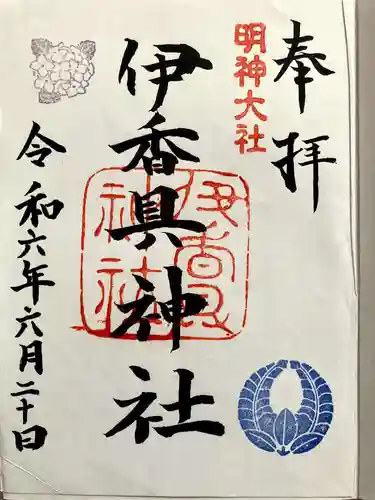 奉拝
明神大社
伊香具神社
伊香具
神社
令和六年六月二十日